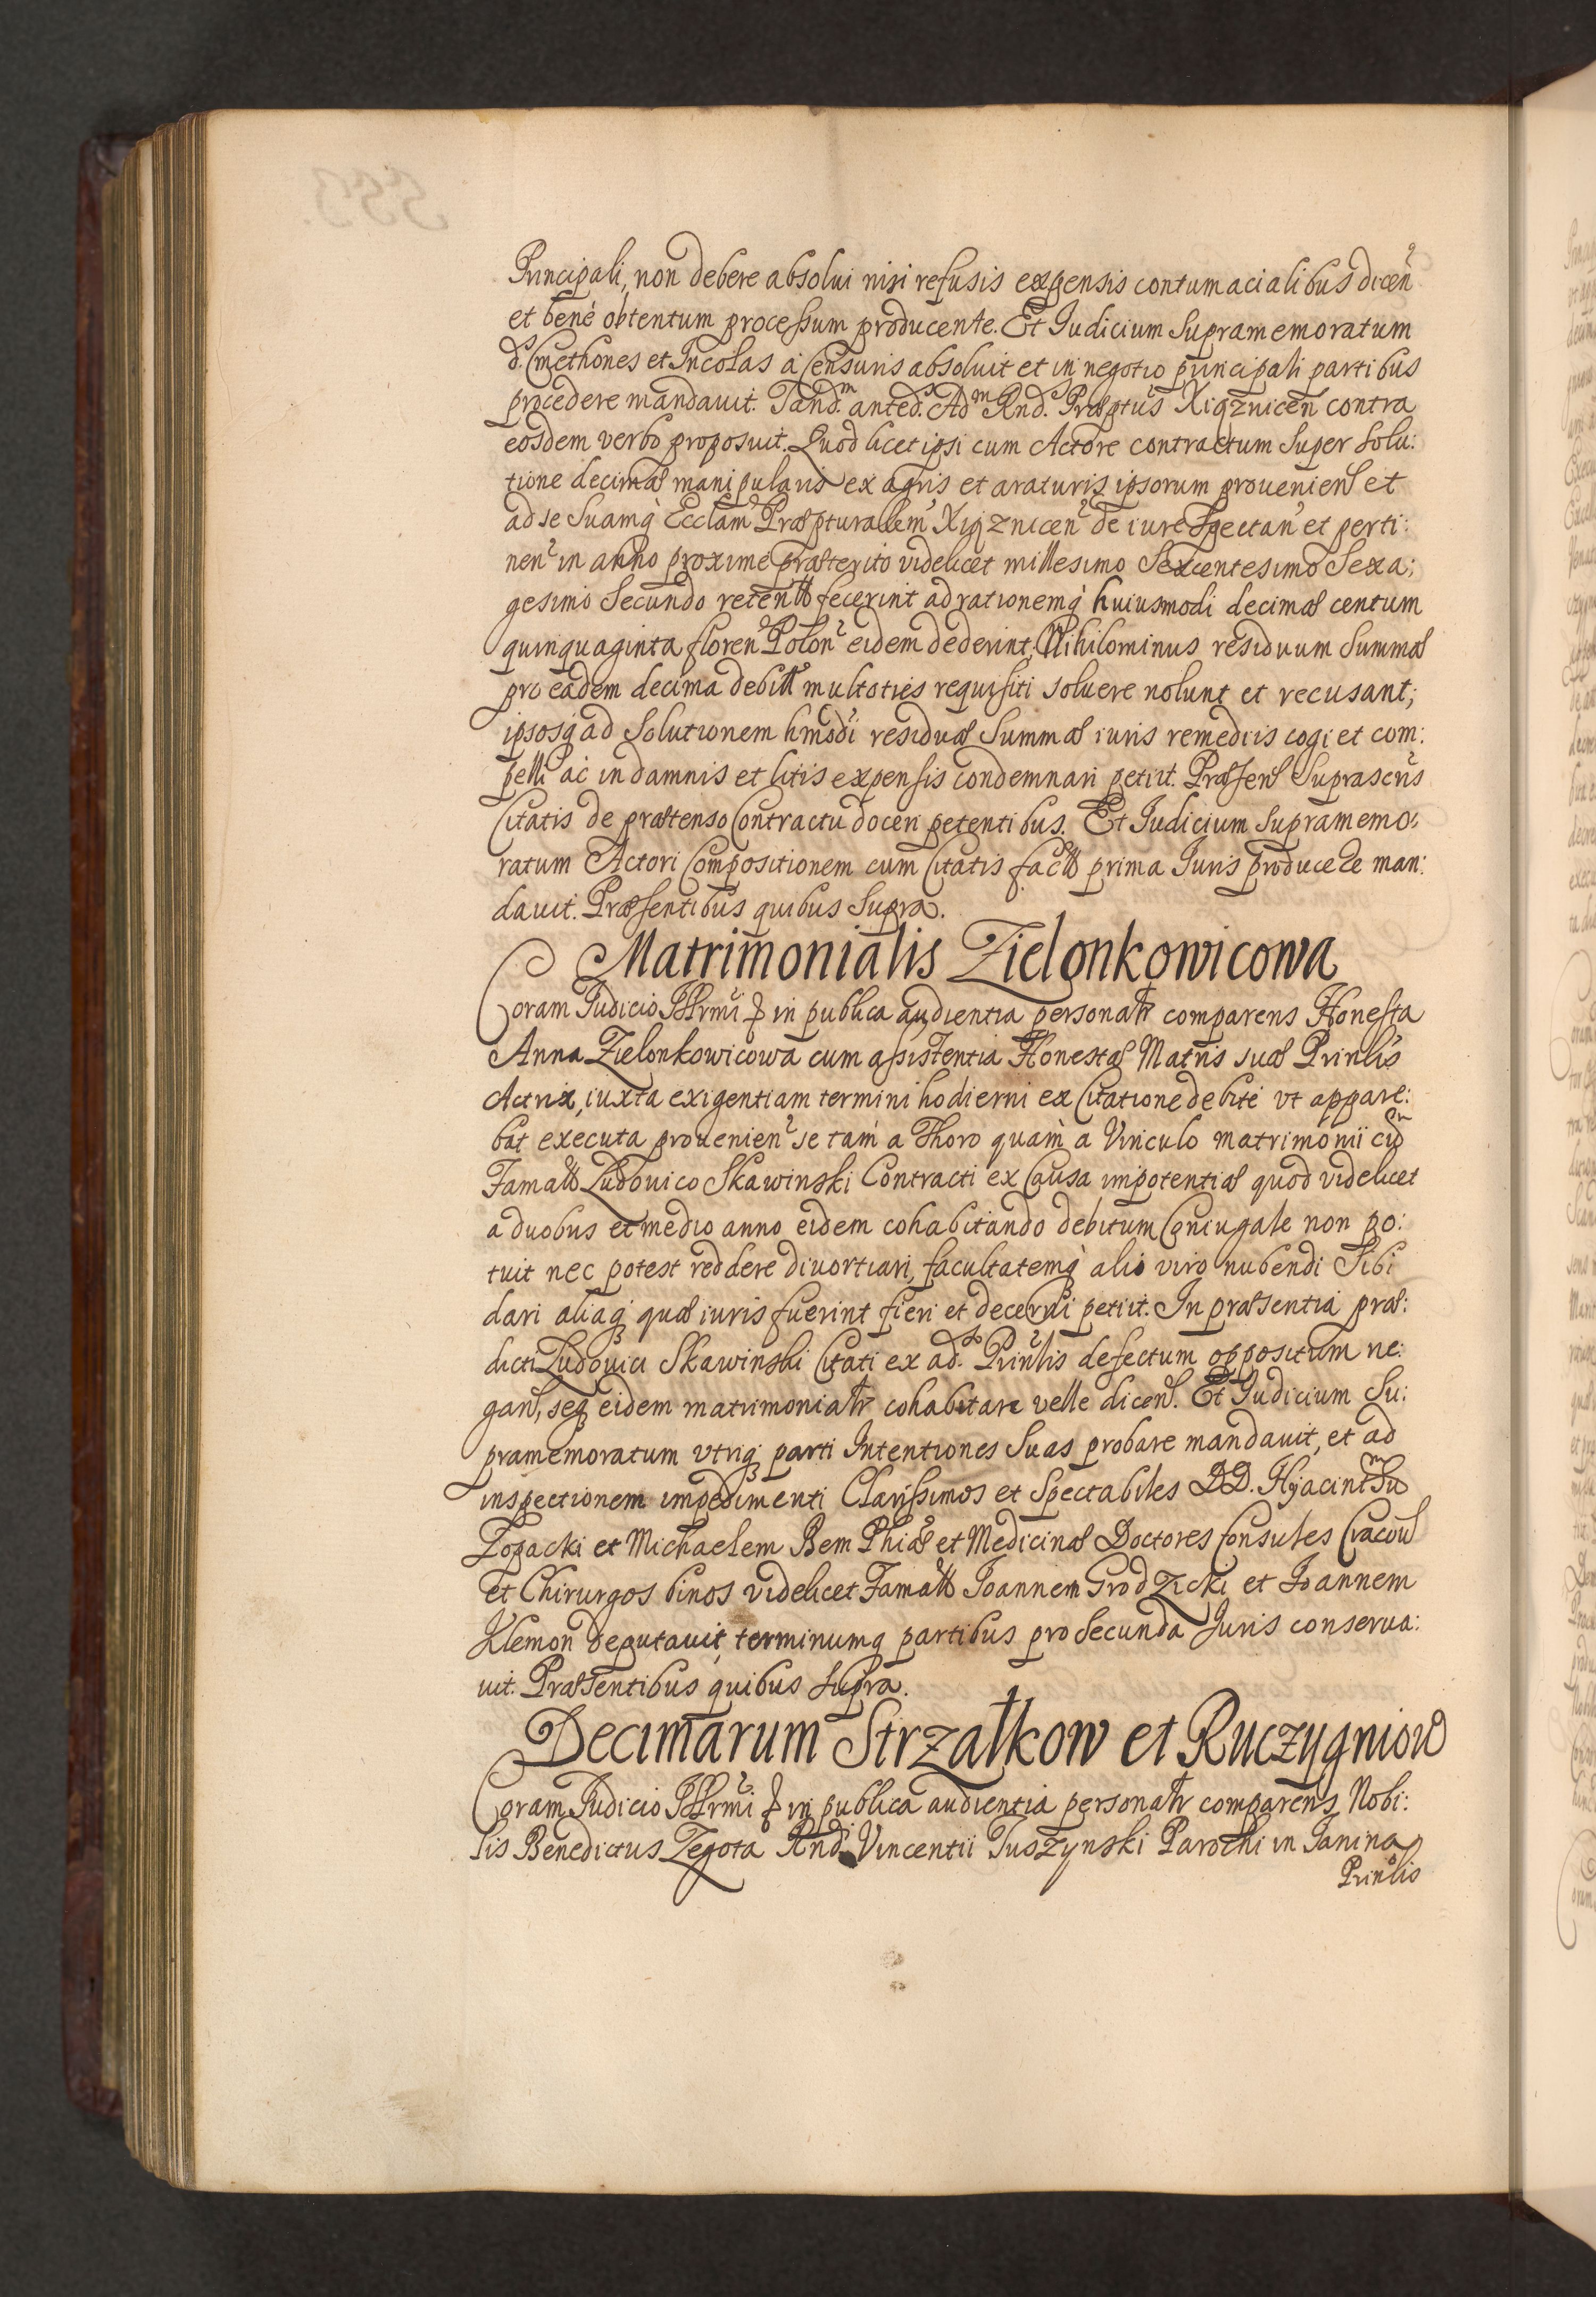 Principali, non debere absolui nisi refusis expensis contumacialibus dicen
et bene obtentum processum producente. Et Iudicium supramemoratum
d. Cmethones et Incolas a Censuris absoluit et in negotio principali partibus
procedere mandauit. Tand.m anted.s Adm Rnd.s Præptus Xiąznicen contra
eosdem verbo proposuit. Quod licet ipsi cum Actore contractum super solu:
tione decimæ manipularis ex agris et araturis ipsorum prouenien et
ad se suamq Ecclam Præpturalem Xiąznicen de iure spectan et perti:
nen in anno proxime præterito videlicet millesimo Sexcentesimo Sexa:
gesimo Secundo retento fecerint ad rationemq huiusmodi decimæ centum
quinquaginta floren Polon eidem dederint, Nihilominus residuum Summæ
pro eadem decima debit multoties requisiti soluere nolunt et recusant;
ipsosq ad solutionem hmodi residuæ Summæ iuris remediis cogi et com:
pelli ac in damnis et litis expensis condemnari petiit. Præsen Suprascris
Citatis de prætenso Contractu doceri petentibus. Et Iudicium supramemo:
ratum Actori Compositionem cum Citatis fact prima Iuris producere man:
dauit. Præsentibus quibus supra.
Matrimonialis Zielonkowicowa
Coram Iudicio Illrmi & in publica audientia personalr comparens Honesta
Anna Zielonkowicowa cum assistentia Honestæ Matris suæ Prinlis
Actrix, iuxta exigentiam termini hodierni ex Citatione debite vt appare:
bat executa prouenien se tam a Thoro quam a Vinculo matrimonii cum
Famato Ludouico Skawinski Contracti ex Causa impotentiæ quod videlicet
a duobus et medio anno eidem cohabitando debitum Coniugale non po:
tuit nec potest reddere diuortiari, facultatemq alio viro nubendi Sibi
dari aliaq quæ iuris fuerint fieri et decerni petiit. In præsentia præ:
dicti Ludouici Skawinski Citati ex ad.so Prinlis defectum oppositum ne:
gan, seq eidem matrimonialr cohabitare velle dicen. Et Iudicium Su:
pramemoratum vtriq parti Intentiones Suas probare mandauit, et ad
inspectionem impedimenti Clarissimos et Spectabiles DD. Hyacinthum
Łopacki et Michaelem Bem Phiæ et Medicinæ Doctores Consules Cracou
et Chirurgos binos videlicet Famatos Ioannem Grodzicki et Ioannem
Klemon deputauit, terminumq partibus pro Secunda Iuris conserua:
uit. Præsentibus quibus supra.
Decimarum Strzałkow et Ruczygniow
Coram Iudicio Illrmi & in publica audientia personalr comparens Nobi:
lis Benedictus Zegota Rnd. Vincentii Tuszynski Parochi in Ianina
Prinlis